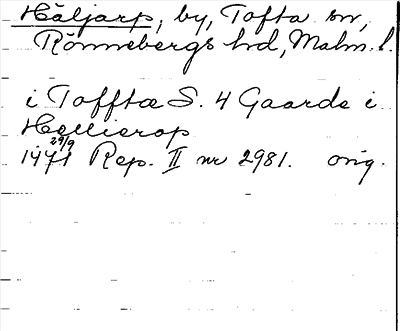 Häljarp, by, Tofta sn,
Rönnebergs hd, Malm. l.
i Tofftæ S. 4 Gaarde i
Hellierop
29/9
1471 Rep. II nr 2981. orig.